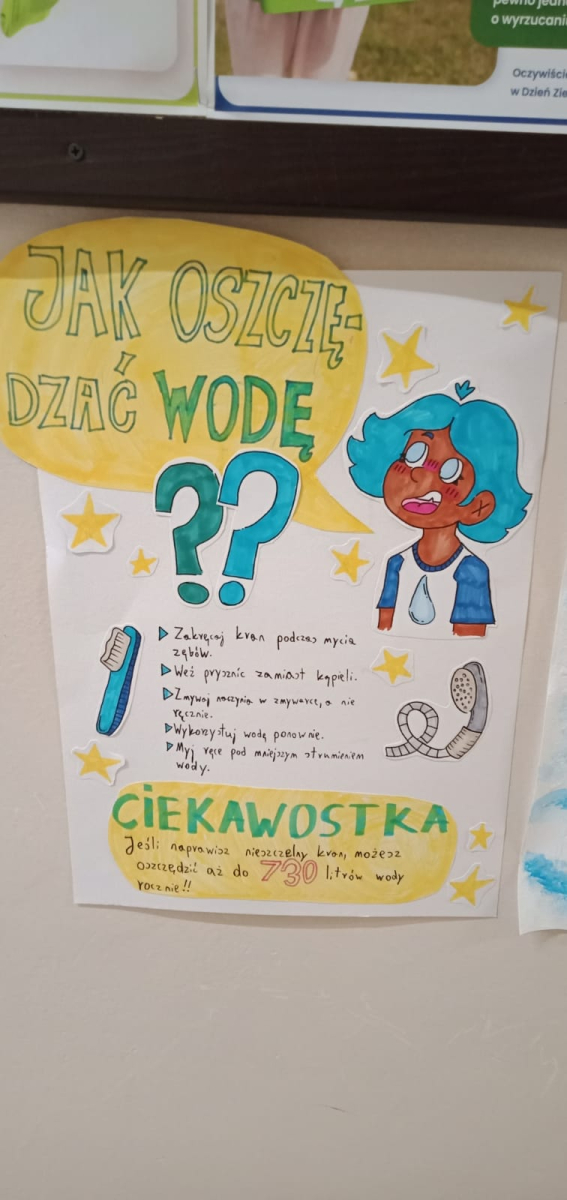 pewno jedn
o wyrzucani
Oczywiście
w Dzień Zie
JAK OSZCZĘ-
DZAĆ WODĘ
??
Zakręcaj kran podczas mycia
zębów.
Weź prysznic zamiast kąpieli.
Zmywaj naczynia w zmywarce, a nie
ręcznie.
Wykorzystuj wodę ponownie.
Myj ręce pod mniejszym strumieniem
wody.
CIEKAWOSTKA
Jeśli naprawisz nieszczelny kran, możesz
oszczędzić aż do 730 litrów wody
rocznie!!